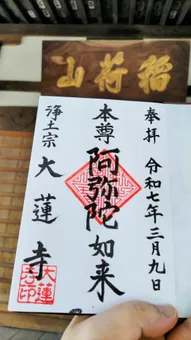 稲荷山
奉拝 令和七年三月九日
本尊 阿弥陀如来
浄土宗 大蓮寺
大蓮
寺印